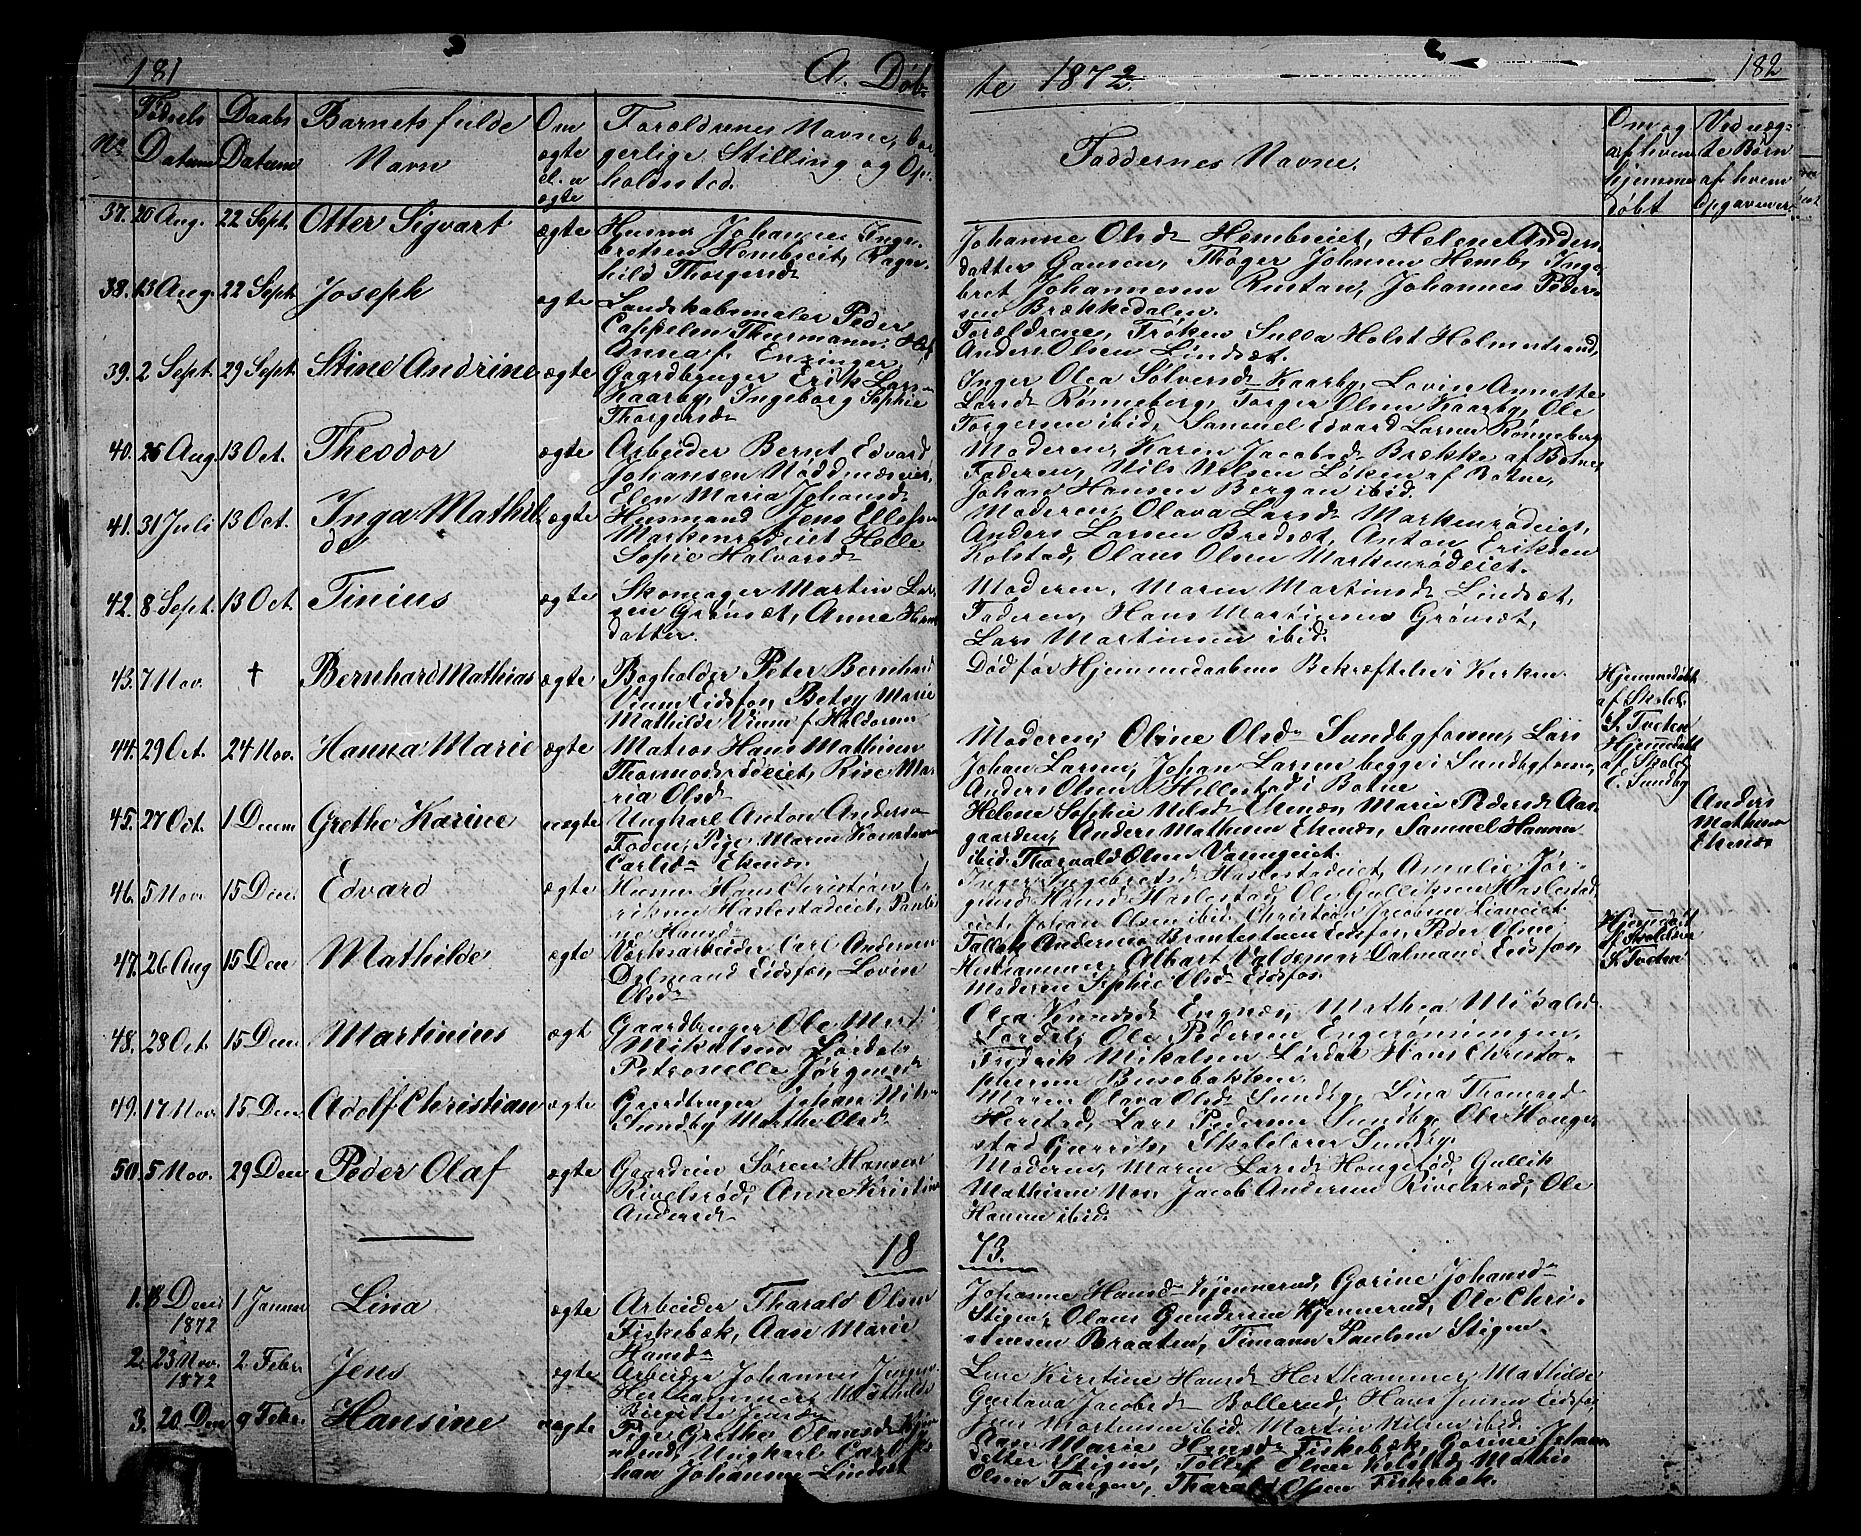 181 A. Døb-
te 1872. 182
No Fødsels Datum Daabs Datum Barnets fulde Navn Om ægte el. u ægte Forældrenes Navne, bor-
gerlige Stilling og Op-
holdssted.
Faddernes Navne.
Om og af hvem hjemme døbt
Ved uæg- te Børn af hvem opgaven er
37. 20 Aug. 22 Sept. Otter Sigvart ægte Husm. Johannes Inge-
bretsen Hembseiet, Ragn-
hild Thorgersd.
Johanne Olsd. Hembseiet, Helene Anders
datter Gausen, Thøger Johnsen Hembs, Inge-
bret Johannesen Rustan, Johannes Peder-
sen Brækkedalen.
38. 13 Aug. 22 Sept. Joseph ægte Landskabsmaler Peder
Cappelen Thurmann,
Anna f. Enzinger
Forældrene, Frøken Sulla Holst Holmestrand,
Anders Olsen Lindsæt.
39. 2 Sept. 29 Sept. Stine Andrine ægte Gaardbruger Erik Lars-
Kaarby, Ingeborg Sophie
Thorgersd.
Inger Olea Sølversd. Kaarby, Lovin Annette
Larsd. Rønneberg, Torger Olsen Kaarby, Ole
Torgersen ibid. Samuel Edvard Larsen Rønneberg
40. 25 Aug. 13 Oct. Theodor ægte Arbeider Bernt Edvard
Johansen Noddenæseiet,
Elen Maria Johansd.
Moderen, Karen Jacobsd. Brække af Botne,
Faderen, Nils Nilsen Løken af Botne,
Johan Hansen Bergan ibid.
41. 31 Juli 13 Oct. Inga Mathil
de ægte Husmand Jens Ellefsen
Markenrødeiet Helle
Sofie Halvorsd.
Moderen, Olava Larsd. Markenrødeiet,
Anders Larsen Bredsæt, Anton Eriksen
Kolstad, Olaus Olsen Markenrødeiet.
42. 8 Sept. 13 Oct. Tinius ægte Skomager Martin Lar-
sen Grønsæt, Anne Hans
datter.
Moderen, Maren Martinsd. Lindsæt,
Faderen, Hans Martinsen Grønsæt,
Lars Martinsen ibid.
43. 7 Nov. † Bernhard Mathias ægte Bogholder Peter Bernhard
Vium Eidsfos, Betsy Marie
Mathilde Vium f. Haldorsen
Død før Hjemmedaabens Bekræftelse i Kirken
Hjemmedøbt
af Skolel.
S. Tveten
44. 29 Oct. 24 Nov. Hanna Marie ægte Matros Hans Mathisen
Thormodsrødeiet, Rise Ma-
ria Olsd.
Moderen, Oline Olsd. Sundbyfossen, Lars
Johan Larsen, Johan Larsen begge i Sundbyfossen,
Anders Olsen Hillestad i Botne
Hjemmedøbt
af Skolel.
E. Sundby
45. 27 Oct. 1 Decem Grethe Karine uægte Ungkarl Anton Anderse-
Foden, Pige Maren
Carlsd. Eknæs
Helene Sophie Nilsd. Eknæs, Marie Pedersd. Aas-
gaarden, Anders Mathisen Eknæs, Samuel Hansen
ibid. Thorvald Olsen
Anders
Mathisen
Eknæs
46. 5 Nov. 15 Decm. Edvard ægte Husm. Hans Christian E-
riksen Haslestadeiet,
Hansd.
Inger Ingebretsd. Haslestadeiet, Amalie Jør-
gine Hansd. Haslestad, Ole Gulliksen Haslestad-
eiet, Johan Olsen ibid. Christian Jacobsen Lianeiet
47. 26 Aug 15 Dec Mathilde ægte Værksarbeider Carl Andersen
Dalmand Eidsfos, Lovise
Olsd.
Tollef Andersen Eidsfos, Peder Olsen
Herthammer, Albert Valdemar Dalmand Eidsfos,
Moderen, Sophie Olsd. Eidsfos
Hjemmedøbt
af Skolelærer
S. Tveten
48. 28 Oct. 15 Dem Martinius ægt Gaardbruger Ole Mart.
Mikalsen Lørdal,
Petronelle Jørgensd.
Olea Knudsd. Engnæs, Mathea Mikalsd.
Lørdal, Ole Pedersen Engerønningen,
Fredrik Mikalsen Lørdal Hans Christo-
phersen Busebakken.
49. 17 Nov. 15 Dem Adolf Christian ægte Gaardbruger Johan Nils.
Sundby, Marthe Olsd.
Maren Olava Olsd. Sundby, Lina Thomasd.
Herstad, Lars Pedersen Sundby, Ole Honger-
stad Skolelærer Sundby.
50. 5 Nov. 29 Dem Peder Olaf ægte Gaardein Søren Hansen
Rivelsrød, Anne Kristine
Andersd.
Moderen, Maren Larsd. Hougsrød, Gullik
Mathisen Nes, Jacob Andersen Rivelsrød, Ole
Hansen ibid.
18 73.
1. 13 Decm. 1872 1 Januar Lina ægte Arbeider Tharald Olsen
Fiskebæk, Aase Marie
Hansd.
Johanne Hansd. Kjennerud, Gorine Johansd.
Stigen, Olaus Gundersen Kjennerud, Ole Chri-
stensen Braaten, Timann Paulsen Stigen.
2. 23 Nov. 1872 2 Febr. Jens ægte Arbeider Johannes Jensen
Herthammer, Mathilde
Birgitte Jensd.
Lene Kirstine Hansd. Herthammer, Mathilde
Gustava Jacobsd. Bollerud, Hans Jensen Eidsfos
Jens Mortensen ibid. Martin Nilsen ibid.
3. 20 Dem 9 Febr. Hansine uægte Pige Grethe Olausd. Kjen-
nerud, Ungkarl Carl Jo-
han Johannes Lindsæt
Aase Marie Hansd. Fiskebæk, Gorine Johans
datter Stigen, Tollef Olsen Kolstad, Mathis
Olsen Tangen, Tharald Olsen Fiskebæk.